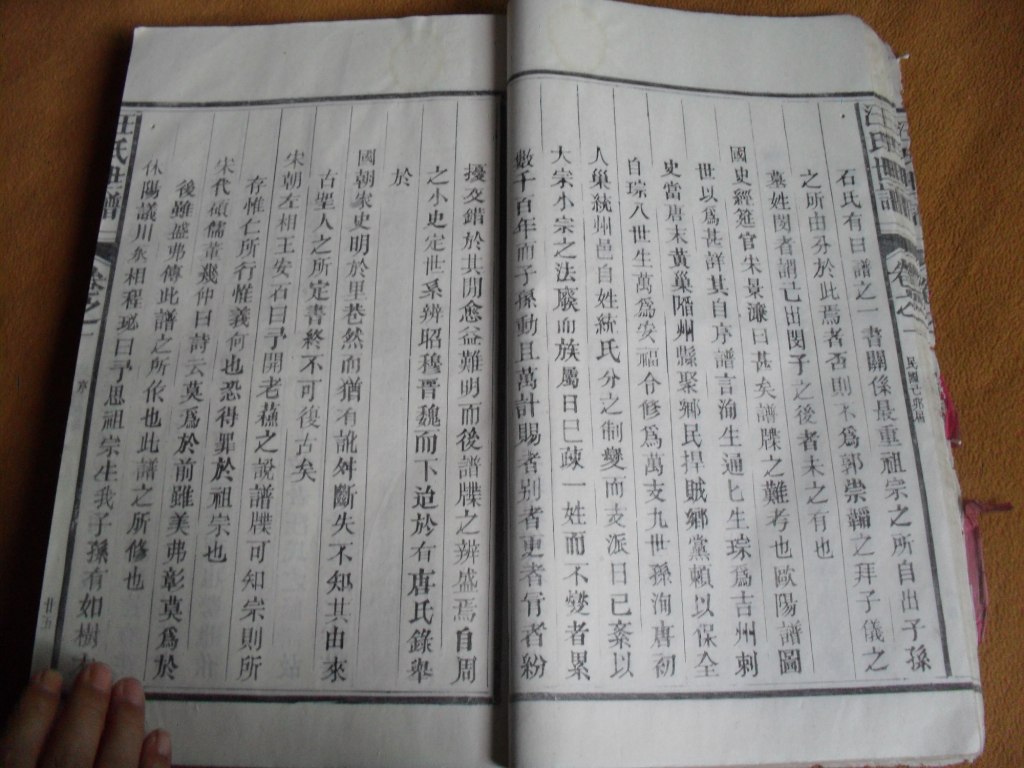 汪氏世譜
卷之一
民國己卯
石氏有曰譜之一書關係最重祖宗之所自出子孫
之所由分於此焉者否則不為郭崇韜之拜子儀之
墓姓閔者謂己出閔子之後者未之有也
國史經筵官宋景濂曰甚矣譜牒之難考也歐陽譜圖
世以為甚詳其自序譜言洵生通匕生琮為吉州刺
史當唐末黃巢陷州縣聚鄉民捍賊鄉黨賴以保全
自琮八世生萬為安福令修為萬支九世孫洵唐初
人巢統州邑自姓統氏分之制變而支派日已紊以
大宗小宗之法廢而族屬日巳疎一姓而不變者累
數千百年而子孫動且萬計賜者別者更者冐者紛
擾交錯於其間愈益難明而後譜牒之辨盛焉自周
之小史定世系辨昭穆晋魏而下迨於有唐氏錄舉
於
國朝宋史明於里
然而猶有訛舛斷失不知其由來
古聖人之所定書終不可復古矣
宋朝左相王安石曰予開老蘓之說譜牒可知宗則所
存惟仁所行惟義何也恐得罪於祖宗也
宋代碩儒董幾仲曰詩云莫為於前雖美弗彰莫為於
後雖盛弗傳此譜之所依也此譜之所修也
休陽議川永相程珌曰予思祖宗生我子孫有如樹
汪氏世譜
卷之一
廿五